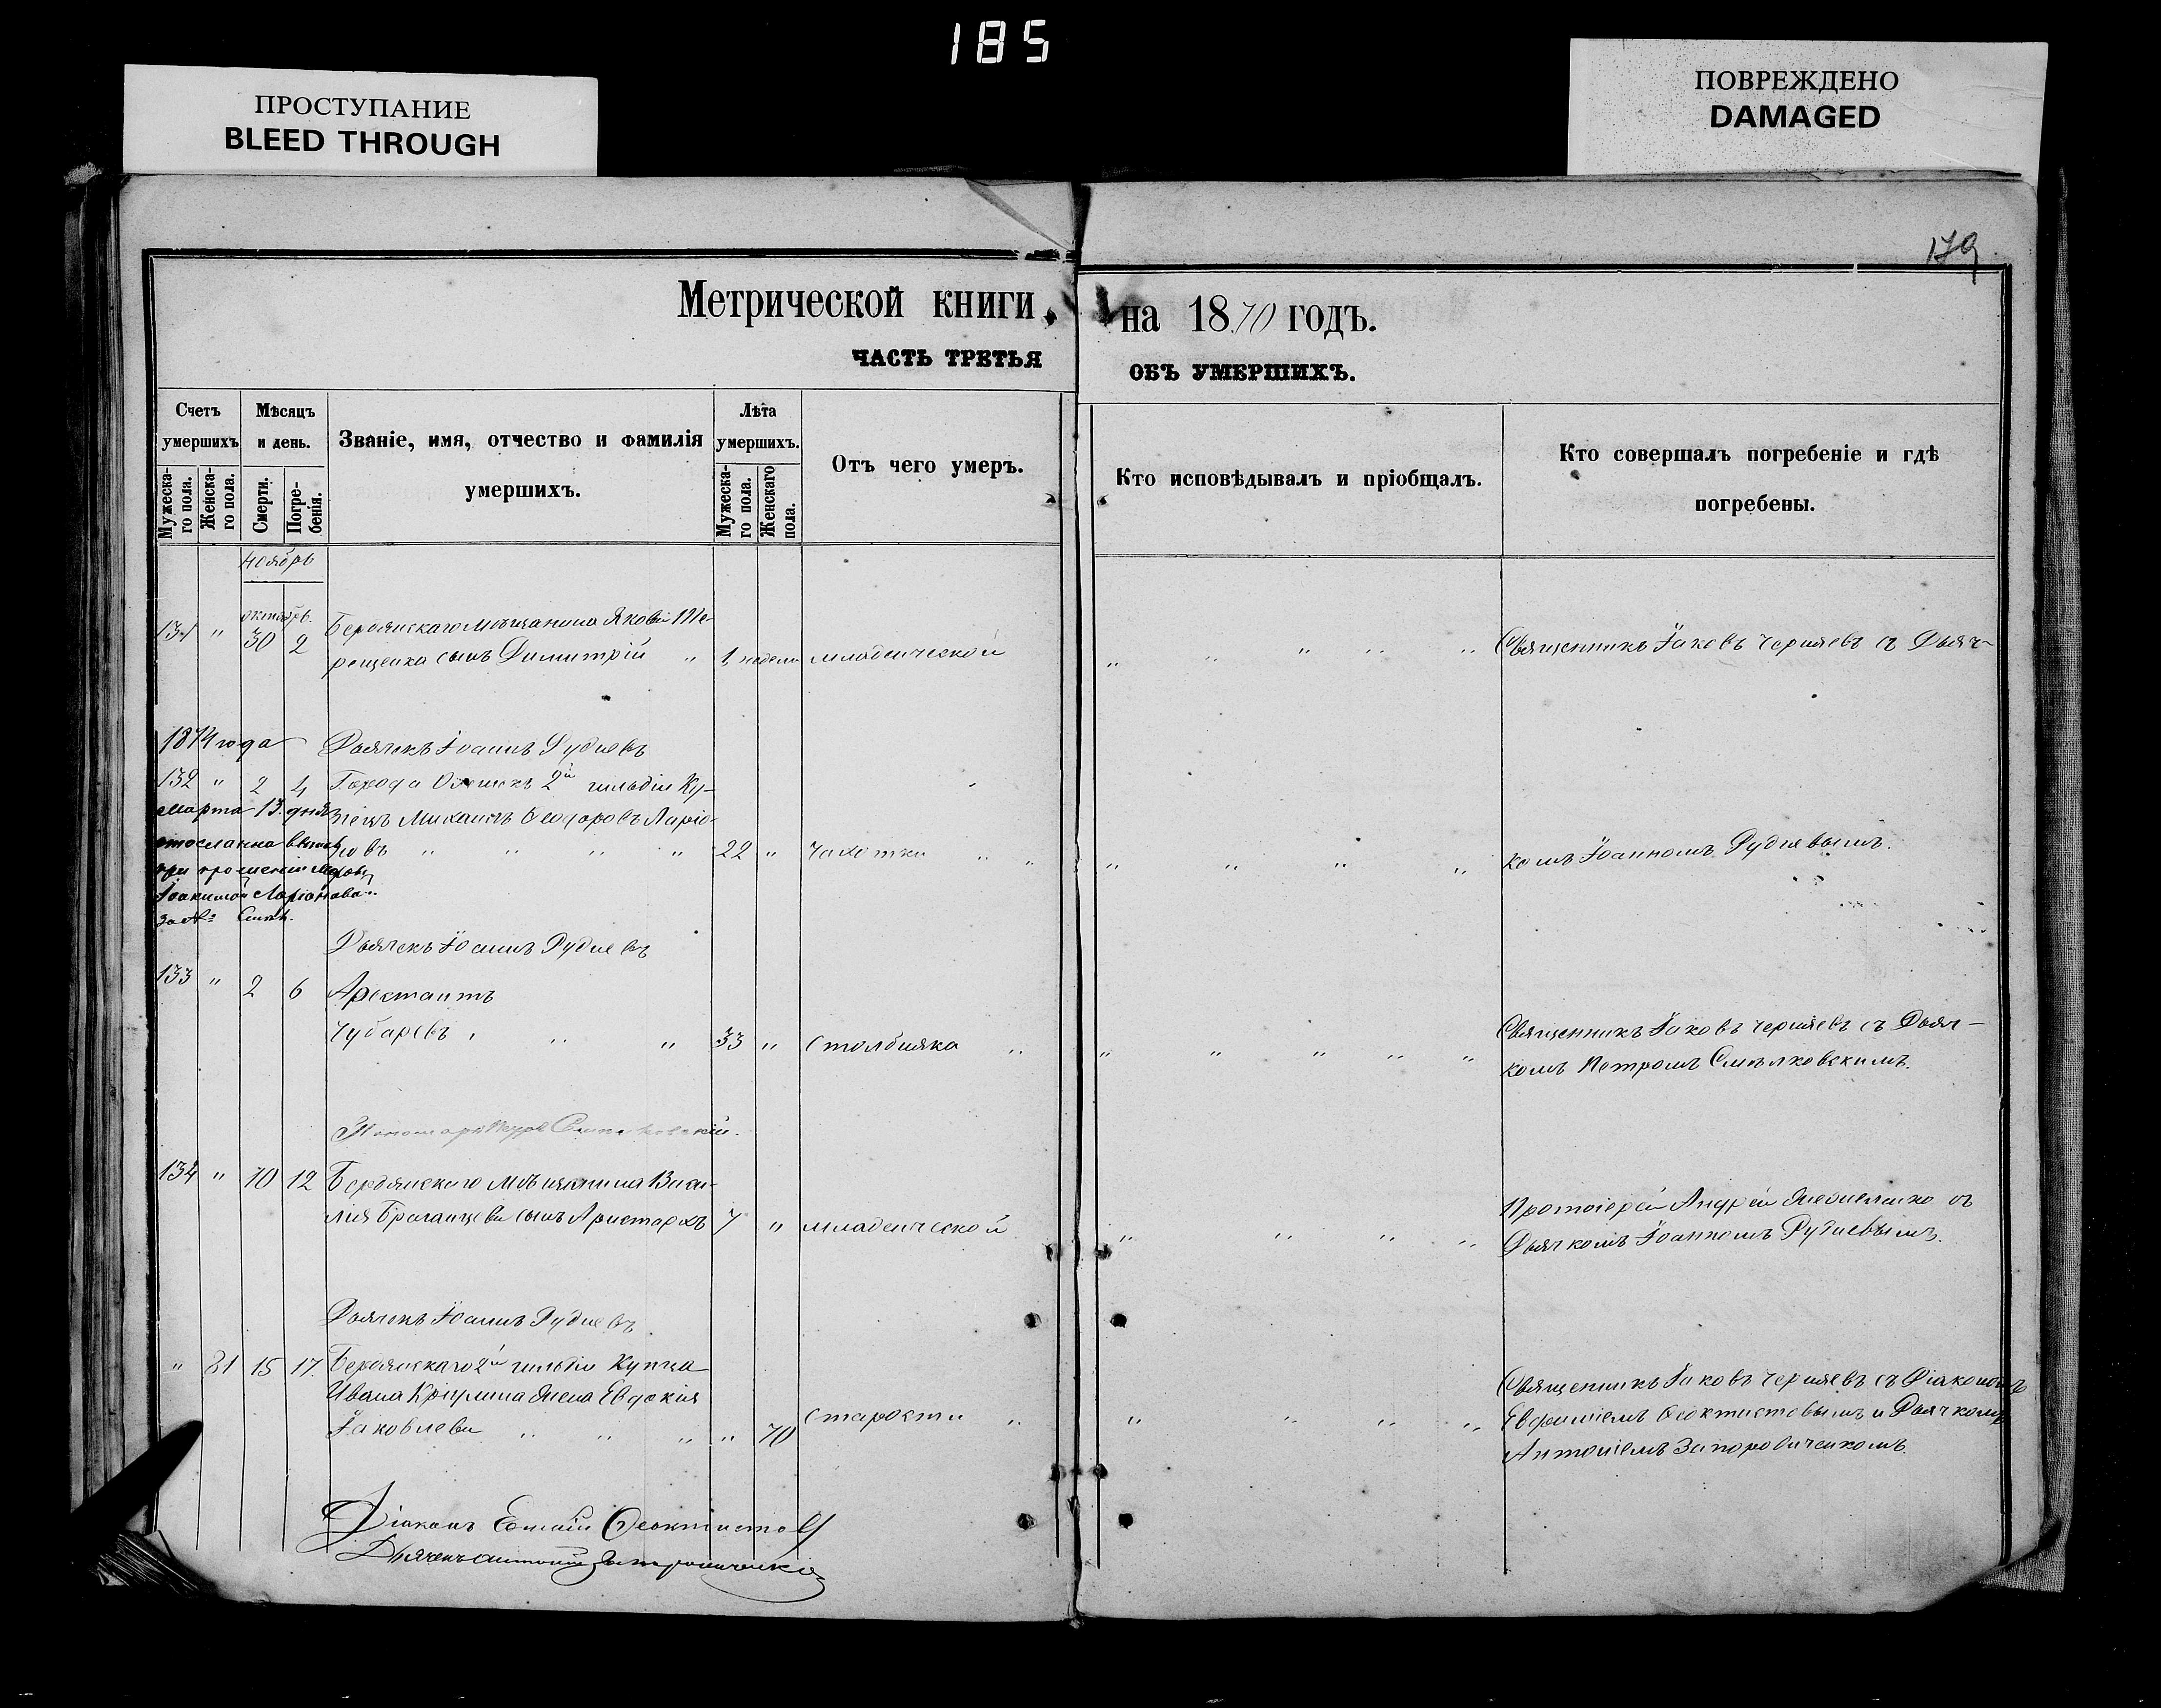 185
ПРОСТУПАНИЕ
BLEED THROUGH
ПОВРЕЖДЕНО
DAMAGED
179
Метрической книги, на 1870 годъ.
ЧАСТЬ ТРЕТЬЯ ОБЪ УМЕРШИХЪ.
Счетъ умершихъ
Мужеска-го пола.
Женска-го пола.
Мѣсяцъ и день.
Смерти.
Погре-бенія.
Званіе, имя, отчество и фамилія
умершихъ.
Лѣта умершихъ.
Мужеска-го пола.
Женскаго пола.
Отъ чего умеръ.
Кто исповѣдывалъ и пріобщалъ.
Кто совершалъ погребеніе и гдѣ
погребены.
Ноябрь
октябрь.
131 " 30 2 Бердянскаго мѣщанина Якова
рещенка сынъ Димитрій " 1 недели младенческой
Священникъ Іаковъ Черняевъ съ Дьяч-
1874 года
Дьячекъ Іоаннъ Рудневъ
132 " 2 4 Города 2й гильдіи Ку-
марта 13. дня
пецъ Михаилъ Ѳеодоровъ Ларіо-
новъ " " " " 22 " Чахотки " "
комъ Іоанномъ Рудневымъ.
при прошеніи
Ларіонова
за №
Дьячекъ Іоаннъ Рудневъ
133 " 2 6 Арестантъ
Чубаревъ " " " 33 " Столбняка "
Священникъ Іаковъ Черняевъ съ Дьяч-
комъ Петромъ Смѣлковскимъ.
Пономарь
134 " 10 12 Бердянскаго мѣщанина Васи-
лія Браганцева сынъ Аристархъ 7 " младенческой
Протоіерей Андрей съ
Дьячкомъ Іоанномъ Рудневымъ.
Дьячекъ Іоаннъ Рудневъ
" 81 15 17. Бердянскаго 2й гильдіи Купца
Ивана жена Евдокія
Іаковлева " " " " 70 старости "
Священникъ Іаковъ Черняевъ съ Діакономъ
Евфиміемъ Ѳеоктистовымъ и Дьячкомъ
Антоніемъ
Діаконъ Ѳеоктистовъ
Дьячекъ Антоній